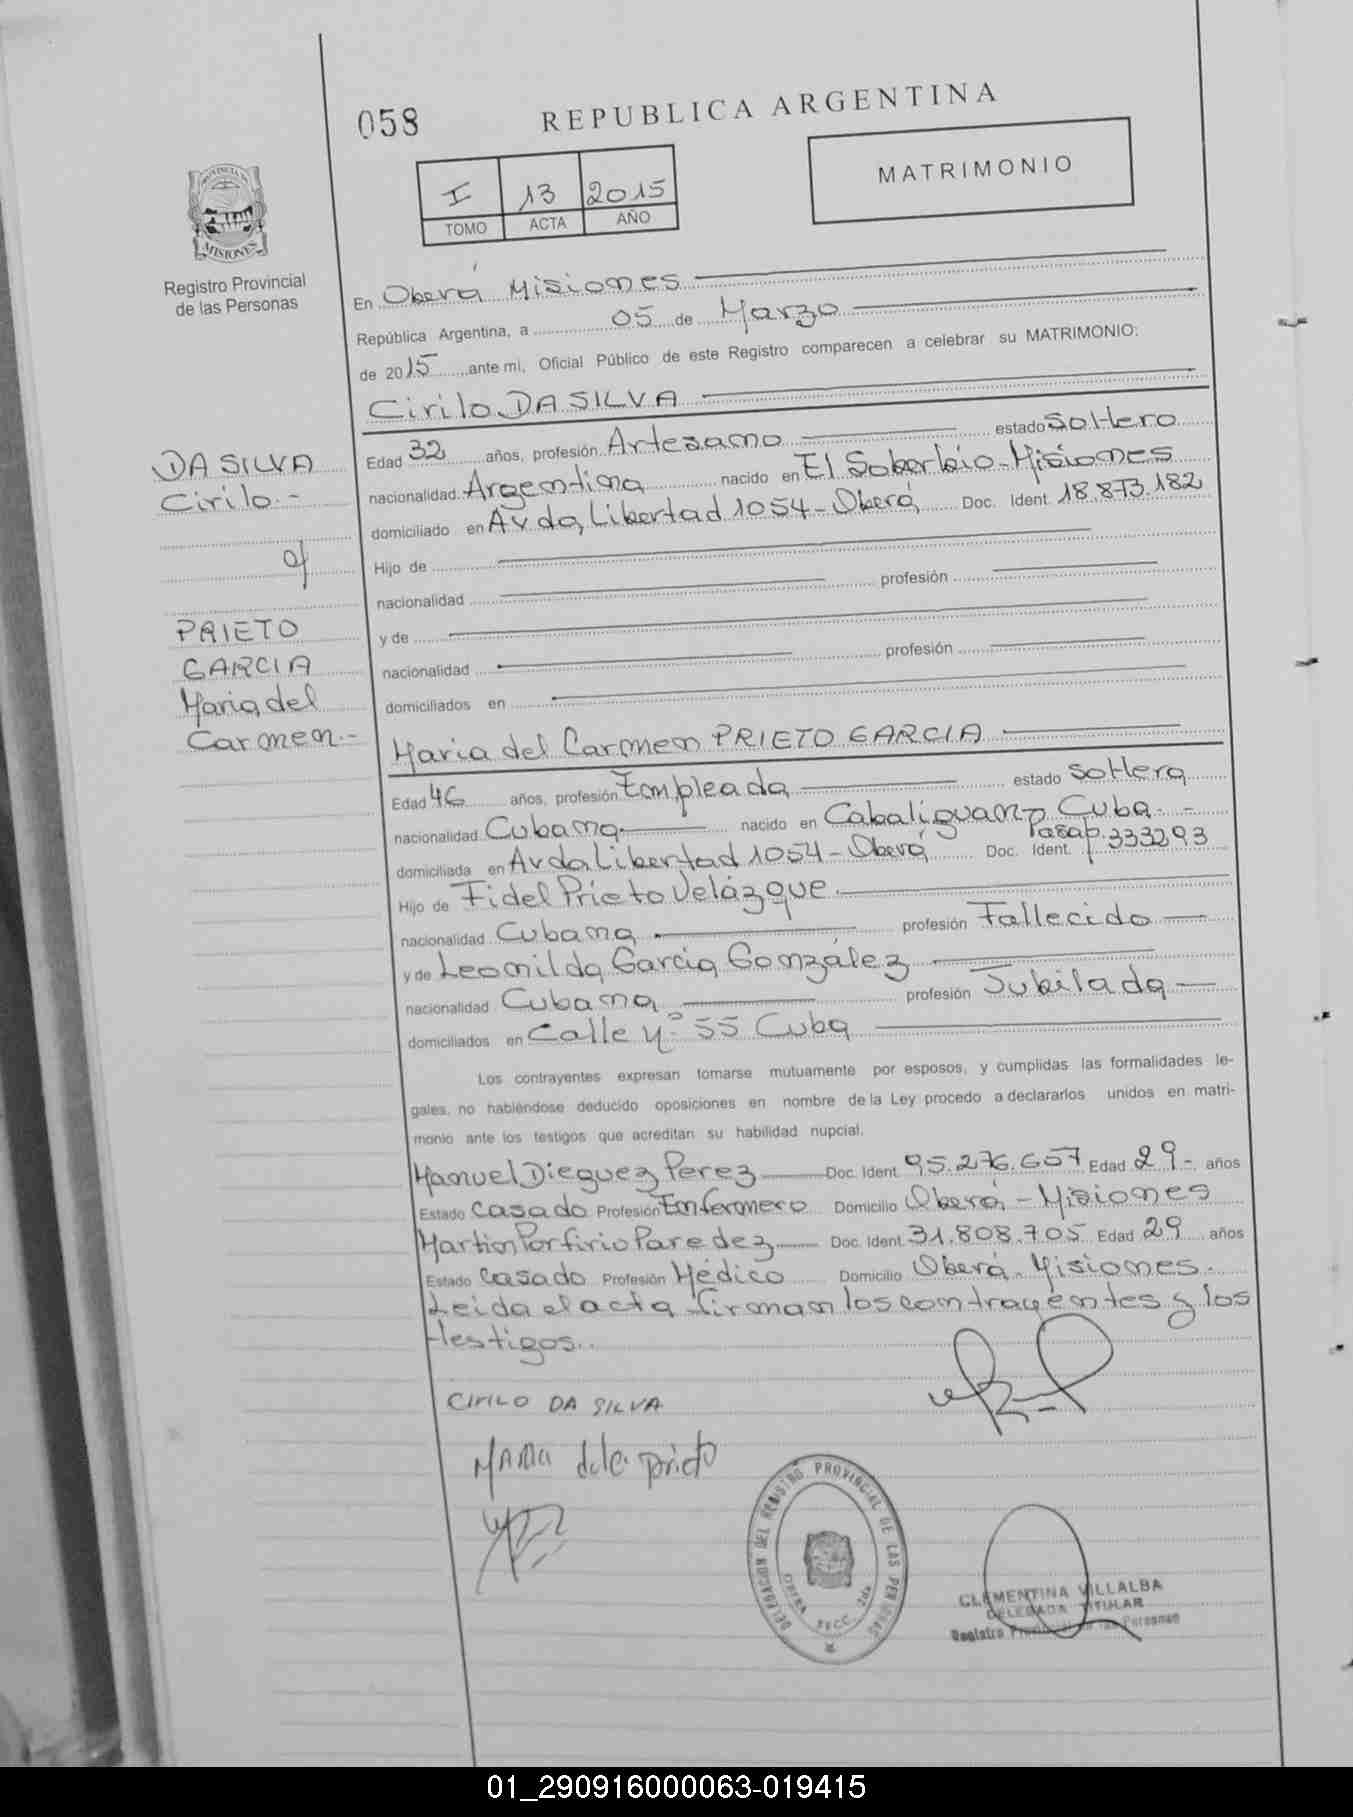 058
REPUBLICA ARGENTINA
I 13 2015
TOMO ACTA AÑO
MATRIMONIO
PROVINCIA DE
MISIONES
Registro Provincial
de las Personas
En Oberá Misiones
República Argentina, a 05 de Marzo
de 2015 ante mi, Oficial Público de este Registro comparecen a celebrar su MATRIMONIO:
Cirilo DA SILVA
DA SILVA
Cirilo.-
c/
PRIETO
GARCIA
Maria del
Carmen.-
Edad 32 años, profesión Artesano estado Soltero
nacionalidad Argentina nacido en El Soberbio-Misiones
domiciliado en Avda Libertad 1054-Oberá Doc. Ident. 18.873.182
Hijo de
nacionalidad profesión
y de
nacionalidad profesión
domiciliados en
Maria del Carmen PRIETO GARCIA
Edad 46 años, profesión Empleada estado Soltera
nacionalidad Cubana nacido en Cabaliguan-Cuba.-
domiciliada en Avda Libertad 1054-Oberá Doc. Ident. Pasap. 333293
Hijo de Fidel Prieto Velázque
nacionalidad Cubana profesión Fallecido
y de Leonilda Garcia González
nacionalidad Cubana profesión Jubilada
domiciliados en Calle Nº 55 Cuba
Los contrayentes expresan tomarse mutuamente por esposos, y cumplidas las formalidades le-
gales, no habiéndose deducido oposiciones en nombre de la Ley procedo a declararlos unidos en matri-
monio ante los testigos que acreditan su habilidad nupcial.
Manuel Dieguez Perez Doc. Ident. 95.276.657 Edad 29- años
Estado Casado Profesión Enfermero Domicilio Oberá-Misiones
Martin Porfirio Paredez Doc. Ident. 31.808.705 Edad 29 años
Estado Casado Profesión Médico Domicilio Oberá-Misiones.
Leida el acta firman los contrayentes y los
testigos..
CIRILO DA SILVA
MARIA del c. prieto
DELEGACION DEL REGISTRO PROVINCIAL DE LAS PERSONAS
OBERA SECC. 2da
CLEMENTINA VILLALBA
DELEGADA TITULAR
Registro Provincial de las Personas
01_290916000063-019415